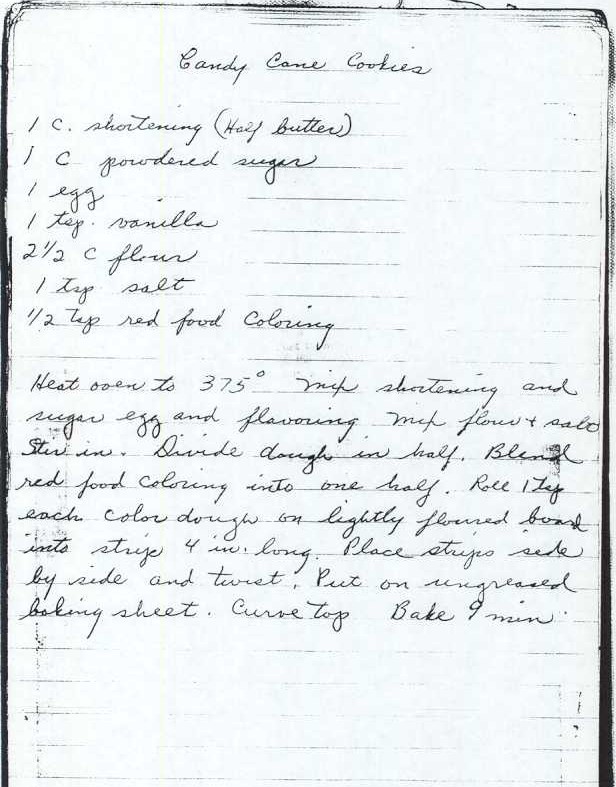 Candy Cane Cookies
1 C. shortening (Half butter)
1 C powdered sugar
1 egg
1 tsp. vanilla
2 1/2 C flour
1 tsp salt
1/2 tsp red food Coloring
Heat oven to 375° Mix shortening and
sugar egg and flavoring Mix flour + salt
Stir in. Divide dough in half. Blend
red food Coloring into one half. Roll 1 tsp
each Color dough on lightly floured board
into strip 4 in. long. Place strips side
by side and twist. Put on ungreased
baking sheet. Curve top Bake 9 min.